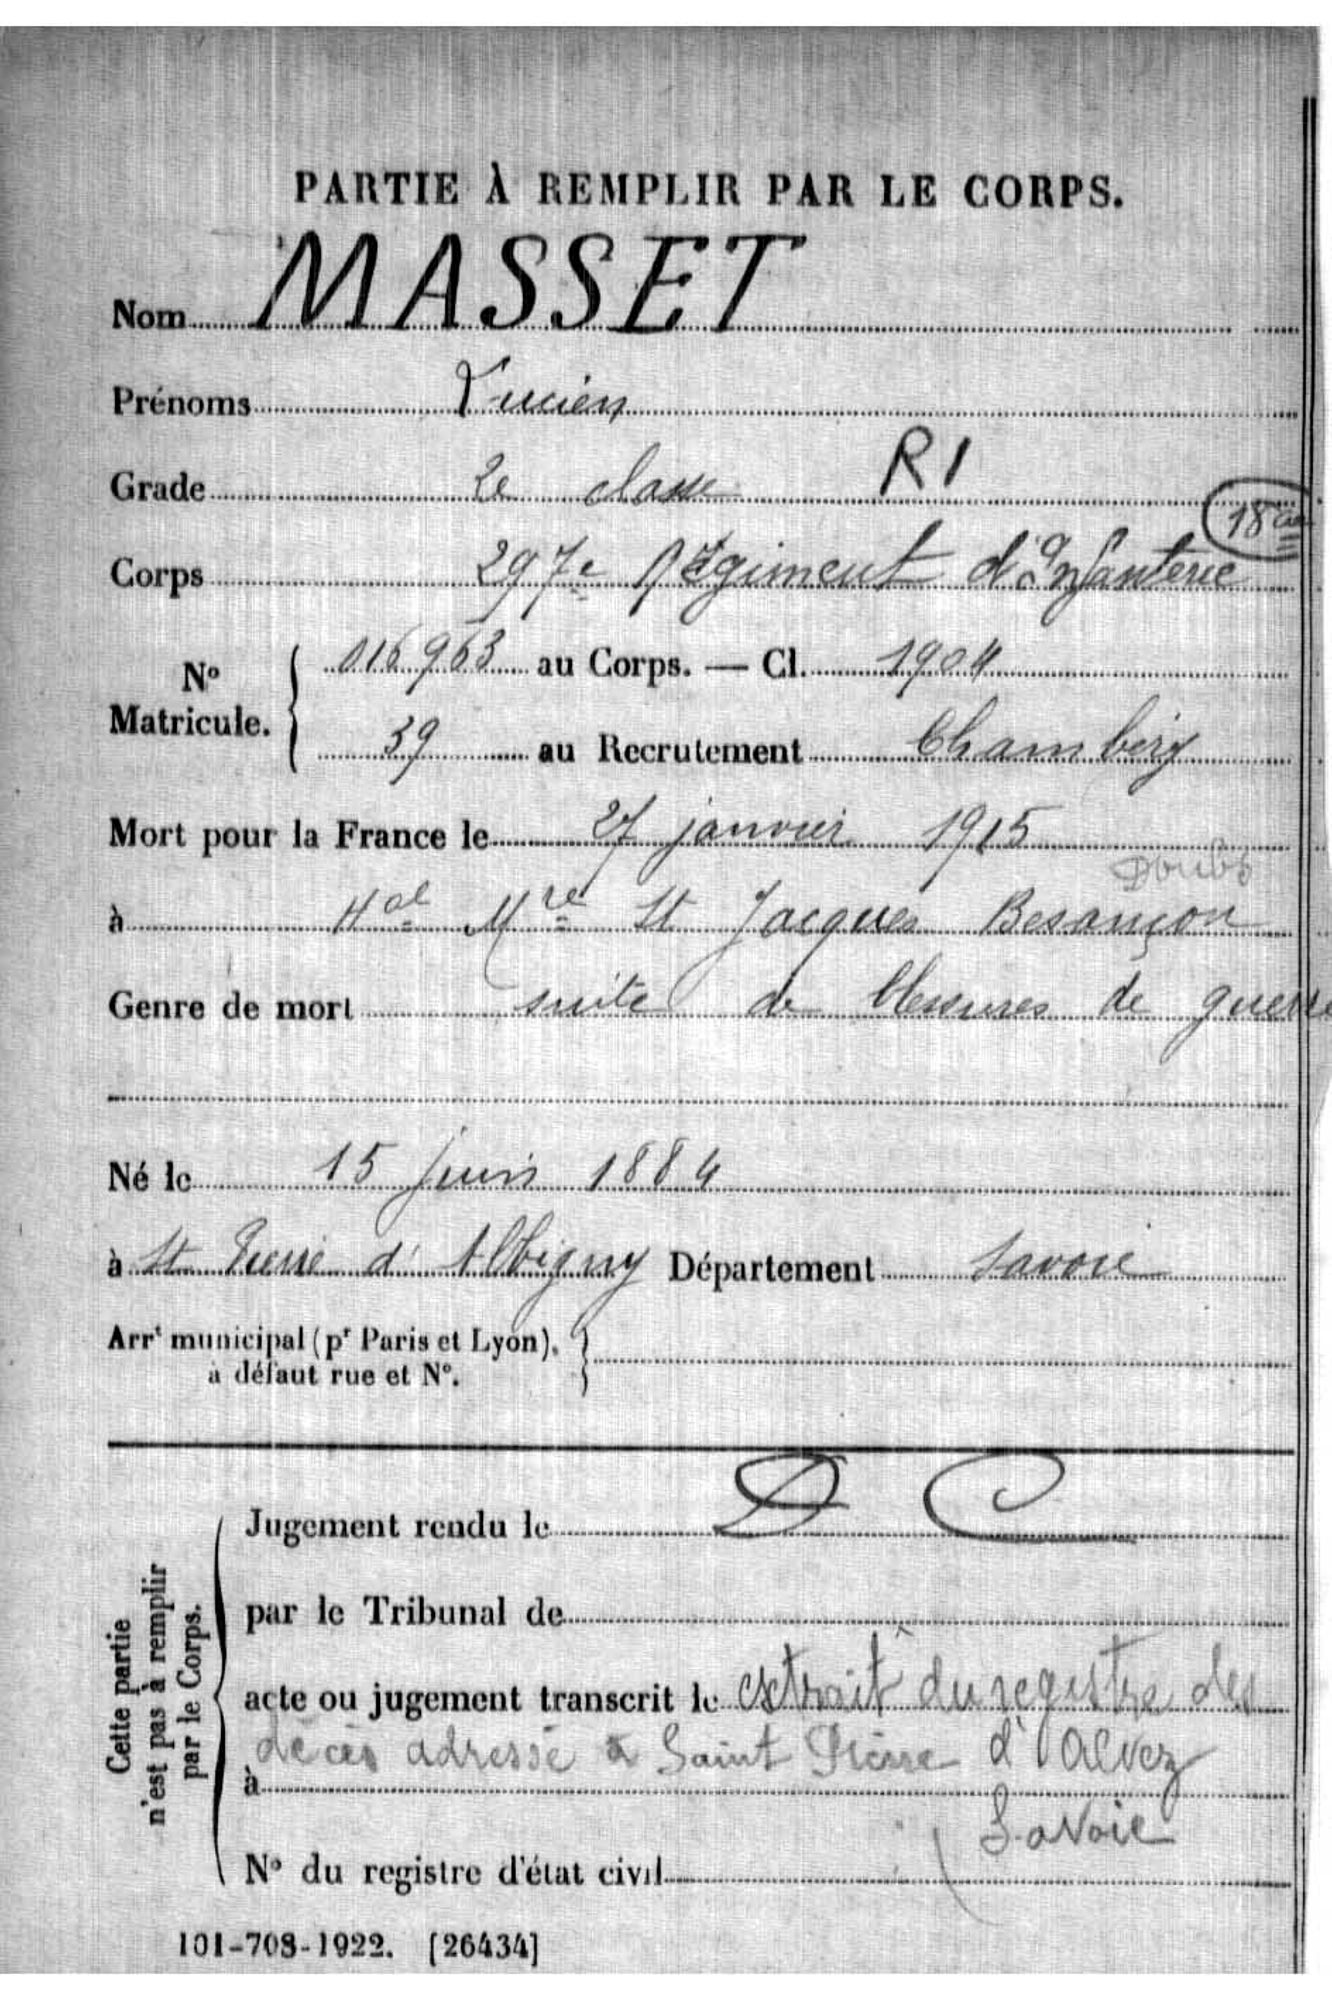 PARTIE À REMPLIR PAR LE CORPS.
Nom MASSET
Prénoms Lucien
Grade 2e classe R I
18
Corps 297e Régiment d'Infanterie
No Matricule. 016963 au Corps. — Cl. 1904
39 au Recrutement Chambéry
Mort pour la France le 27 janvier 1915
Doubs
à Hal Mre St Jacques Besançon
Genre de mort suite de blessures de guerre
Né le 15 Juin 1884
à St Pierre d'Albigny Département Savoie
Arrt municipal (pr Paris et Lyon),
à défaut rue et No.
D C
Cette partie n'est pas à remplir par le Corps.
Jugement rendu le
par le Tribunal de
acte ou jugement transcrit le extrait du registre des
décès adressé à Saint Pierre d'Alvez
à
Savoie
No du registre d'état civil
101-708-1922. [26434]